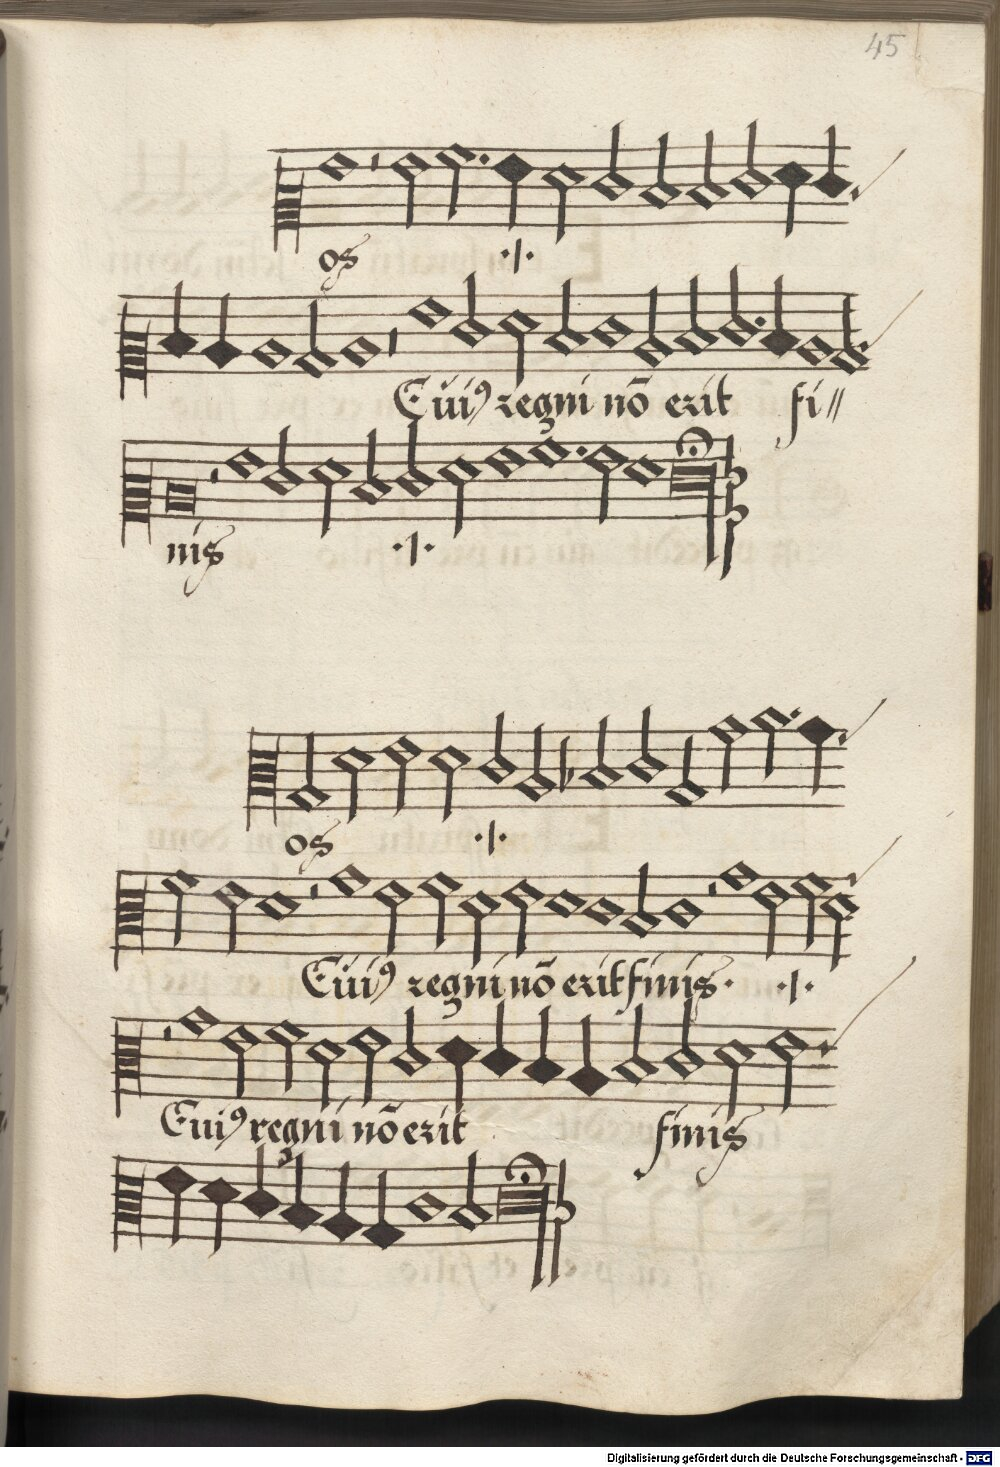 45
os ·/·
Cuiꝰ regni nō erit fi//
nis ·/·
os ·/·
Cuiꝰ regni nō erit finis· ·/·
Cuiꝰ regni nō erit finis
Digitalisierung gefördert durch die Deutsche Forschungsgemeinschaft - DFG